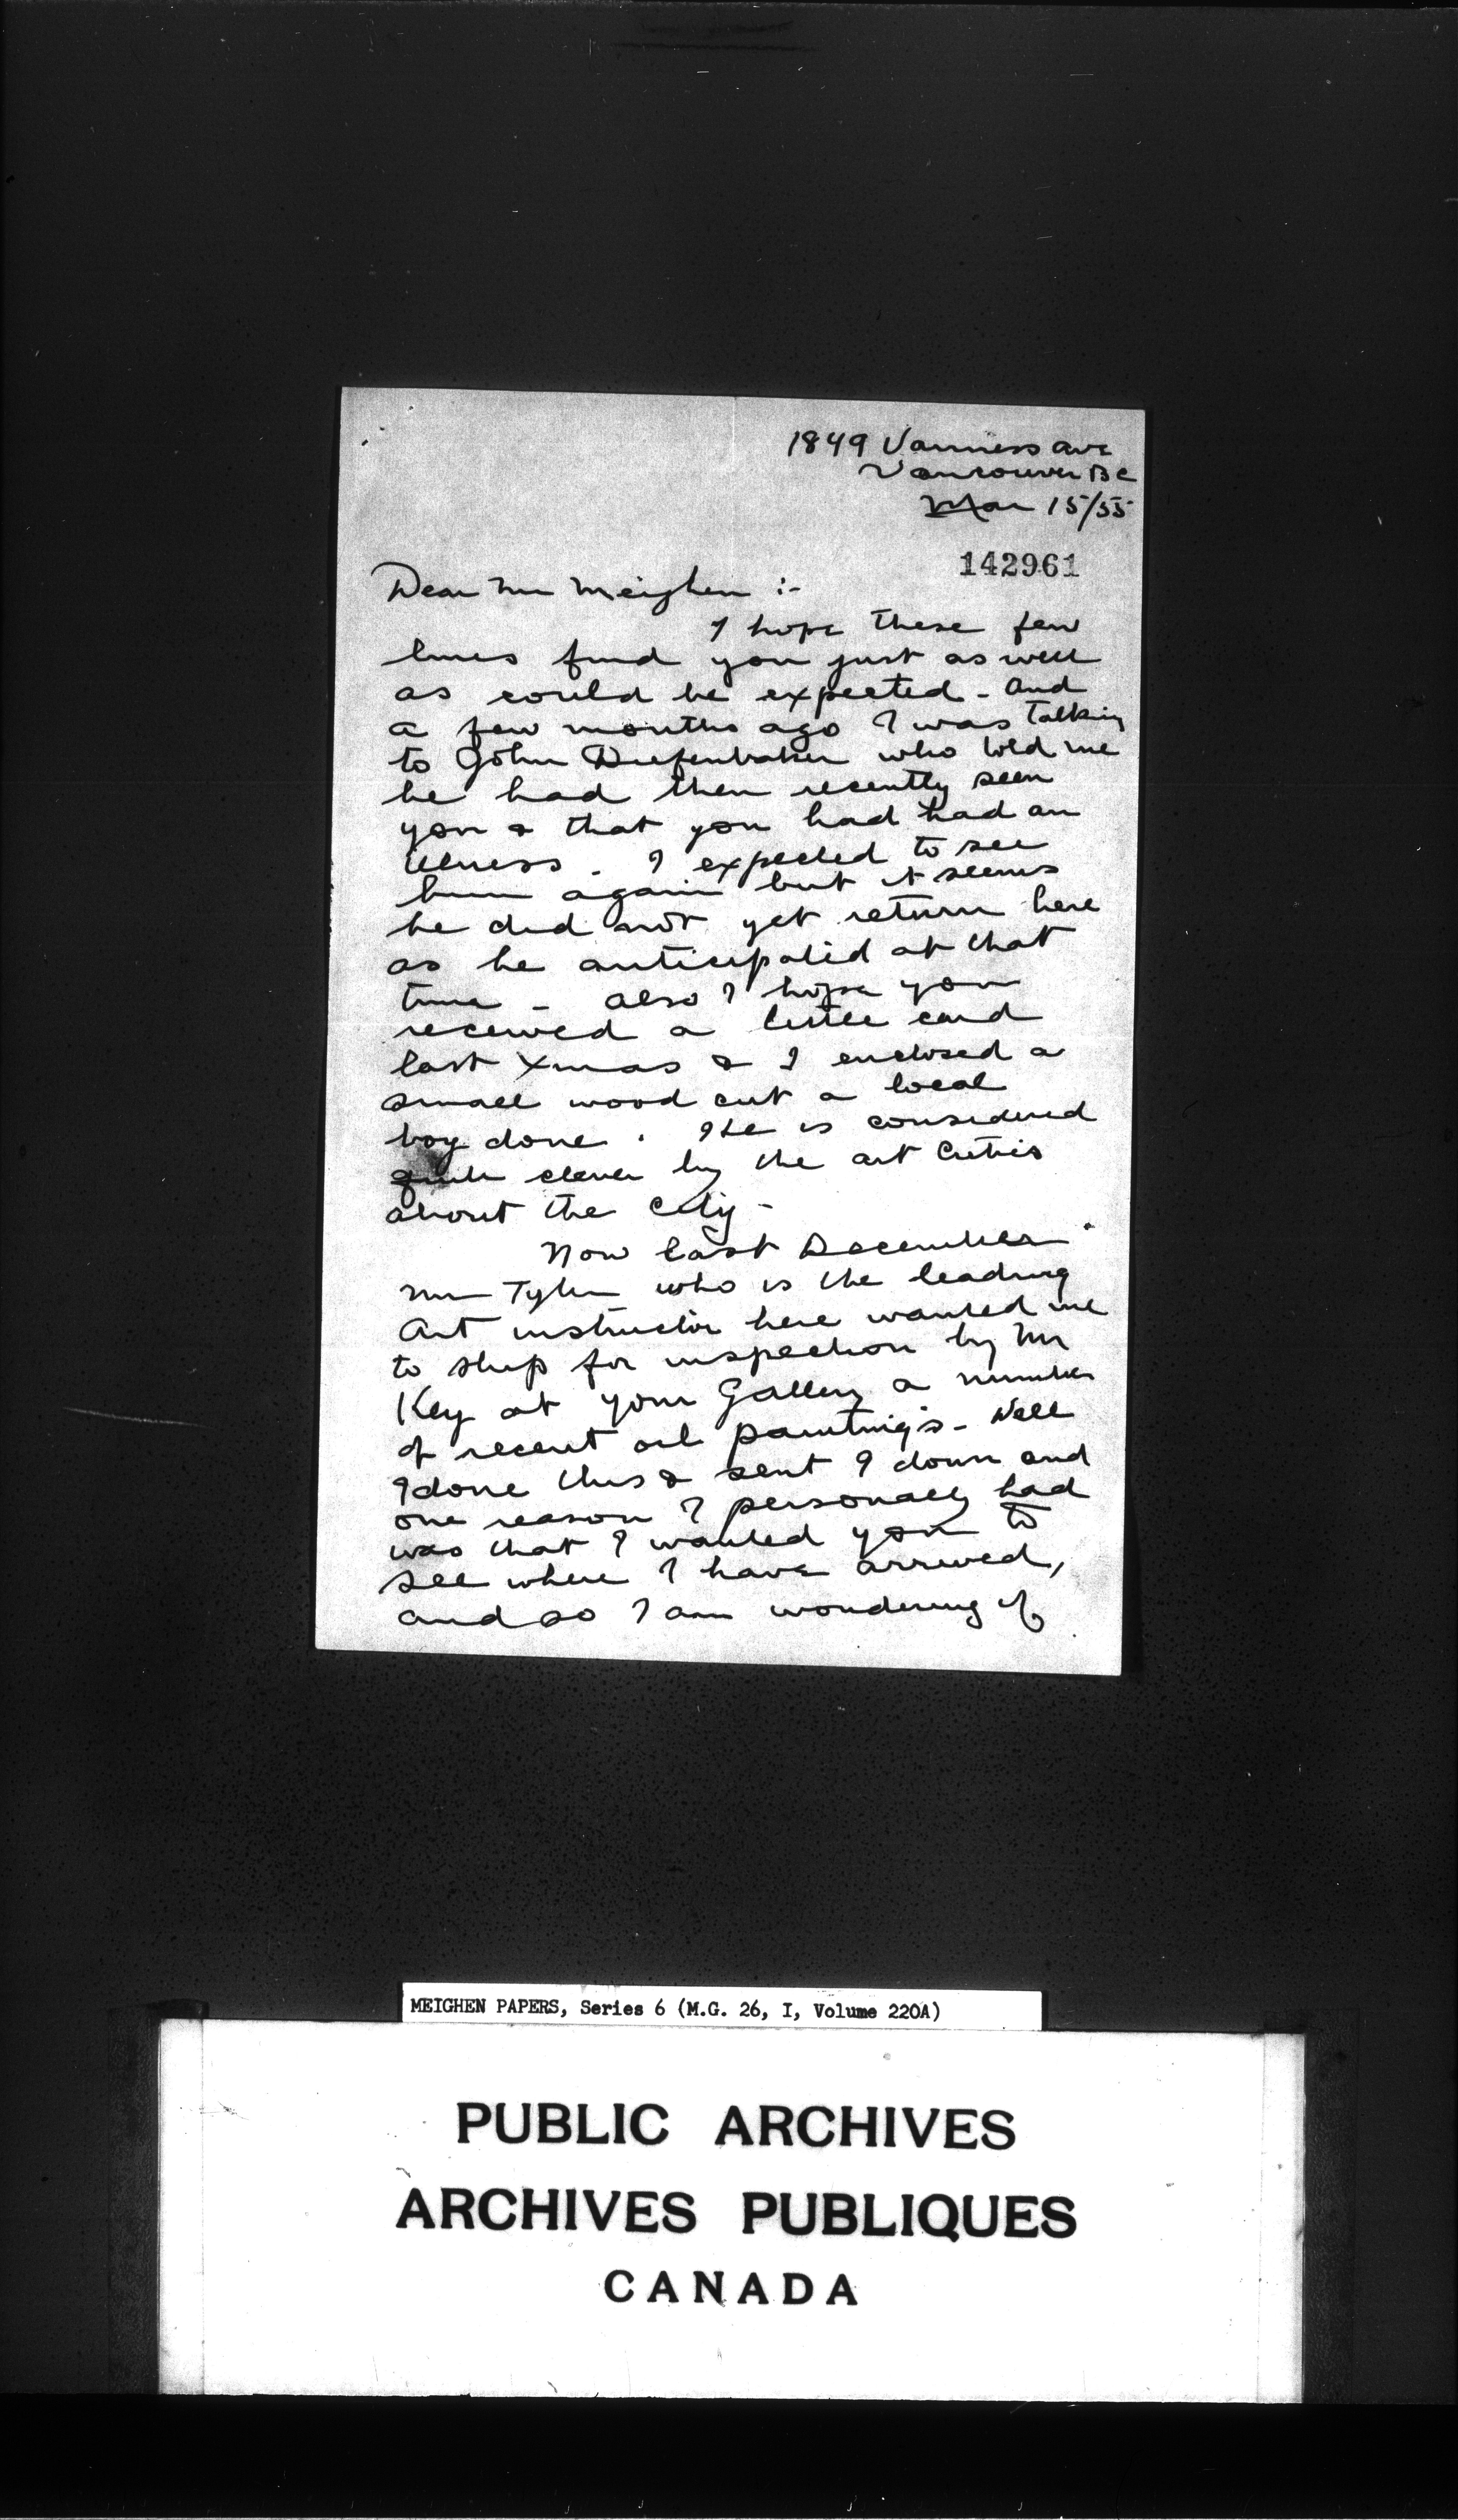 1849 Vanness ave
Vancouver BC
Mar 15/55
142961
Dear Mr Meighen :-
I hope these few
lines find you just as well
as could be expected - and
a few months ago I was talking
to John Diefenbaker who told me
he had then recently seen
you & that you had had an
illness. I expected to see
him again but it seems
he did not yet return here
as he anticipated at that
time - also I hope you
received a little card
last Xmas & I enclosed a
small wood cut a local
boy done. He is considered
quite clever by the art Critics
about the city -
Now last December
Mr Tyler who is the leading
Art instructor here wanted me
to ship for inspection by Mr
Key at your Gallery a number
of recent oil painting's - Well
I done this & sent 9 down and
one reason I personally had
was that I wanted you to
see where I have arrived,
and so I am wondering if
MEIGHEN PAPERS, Series 6 (M.G. 26, I, Volume 220A)
PUBLIC ARCHIVES
ARCHIVES PUBLIQUES
CANADA